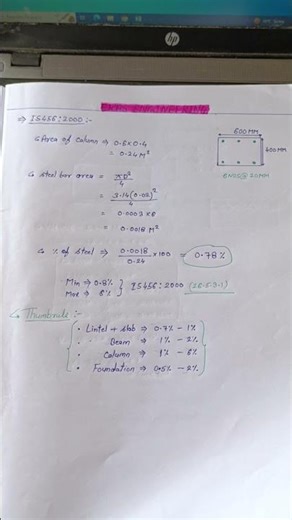 hp
=> IS456:2000 :-
↳ Area of Column => 0.6×0.4
= 0.24 M²
600MM
400MM
6NOS@20MM
↳ Steel bar area = πD²/4
= 3.14(0.02)²/4
= 0.0003×6
= 0.0018 M²
↳ % of Steel => 0.0018/0.24 ×100 = 0.78%
Min => 0.8%
Max => 6% } IS456:2000 (26.5.3.1)
↳ Thumbrule :-
• Lintel + slab => 0.7% - 1%
• Beam => 1% - 2%
• Column => 1% - 6%
• Foundation => 0.5% - 2%